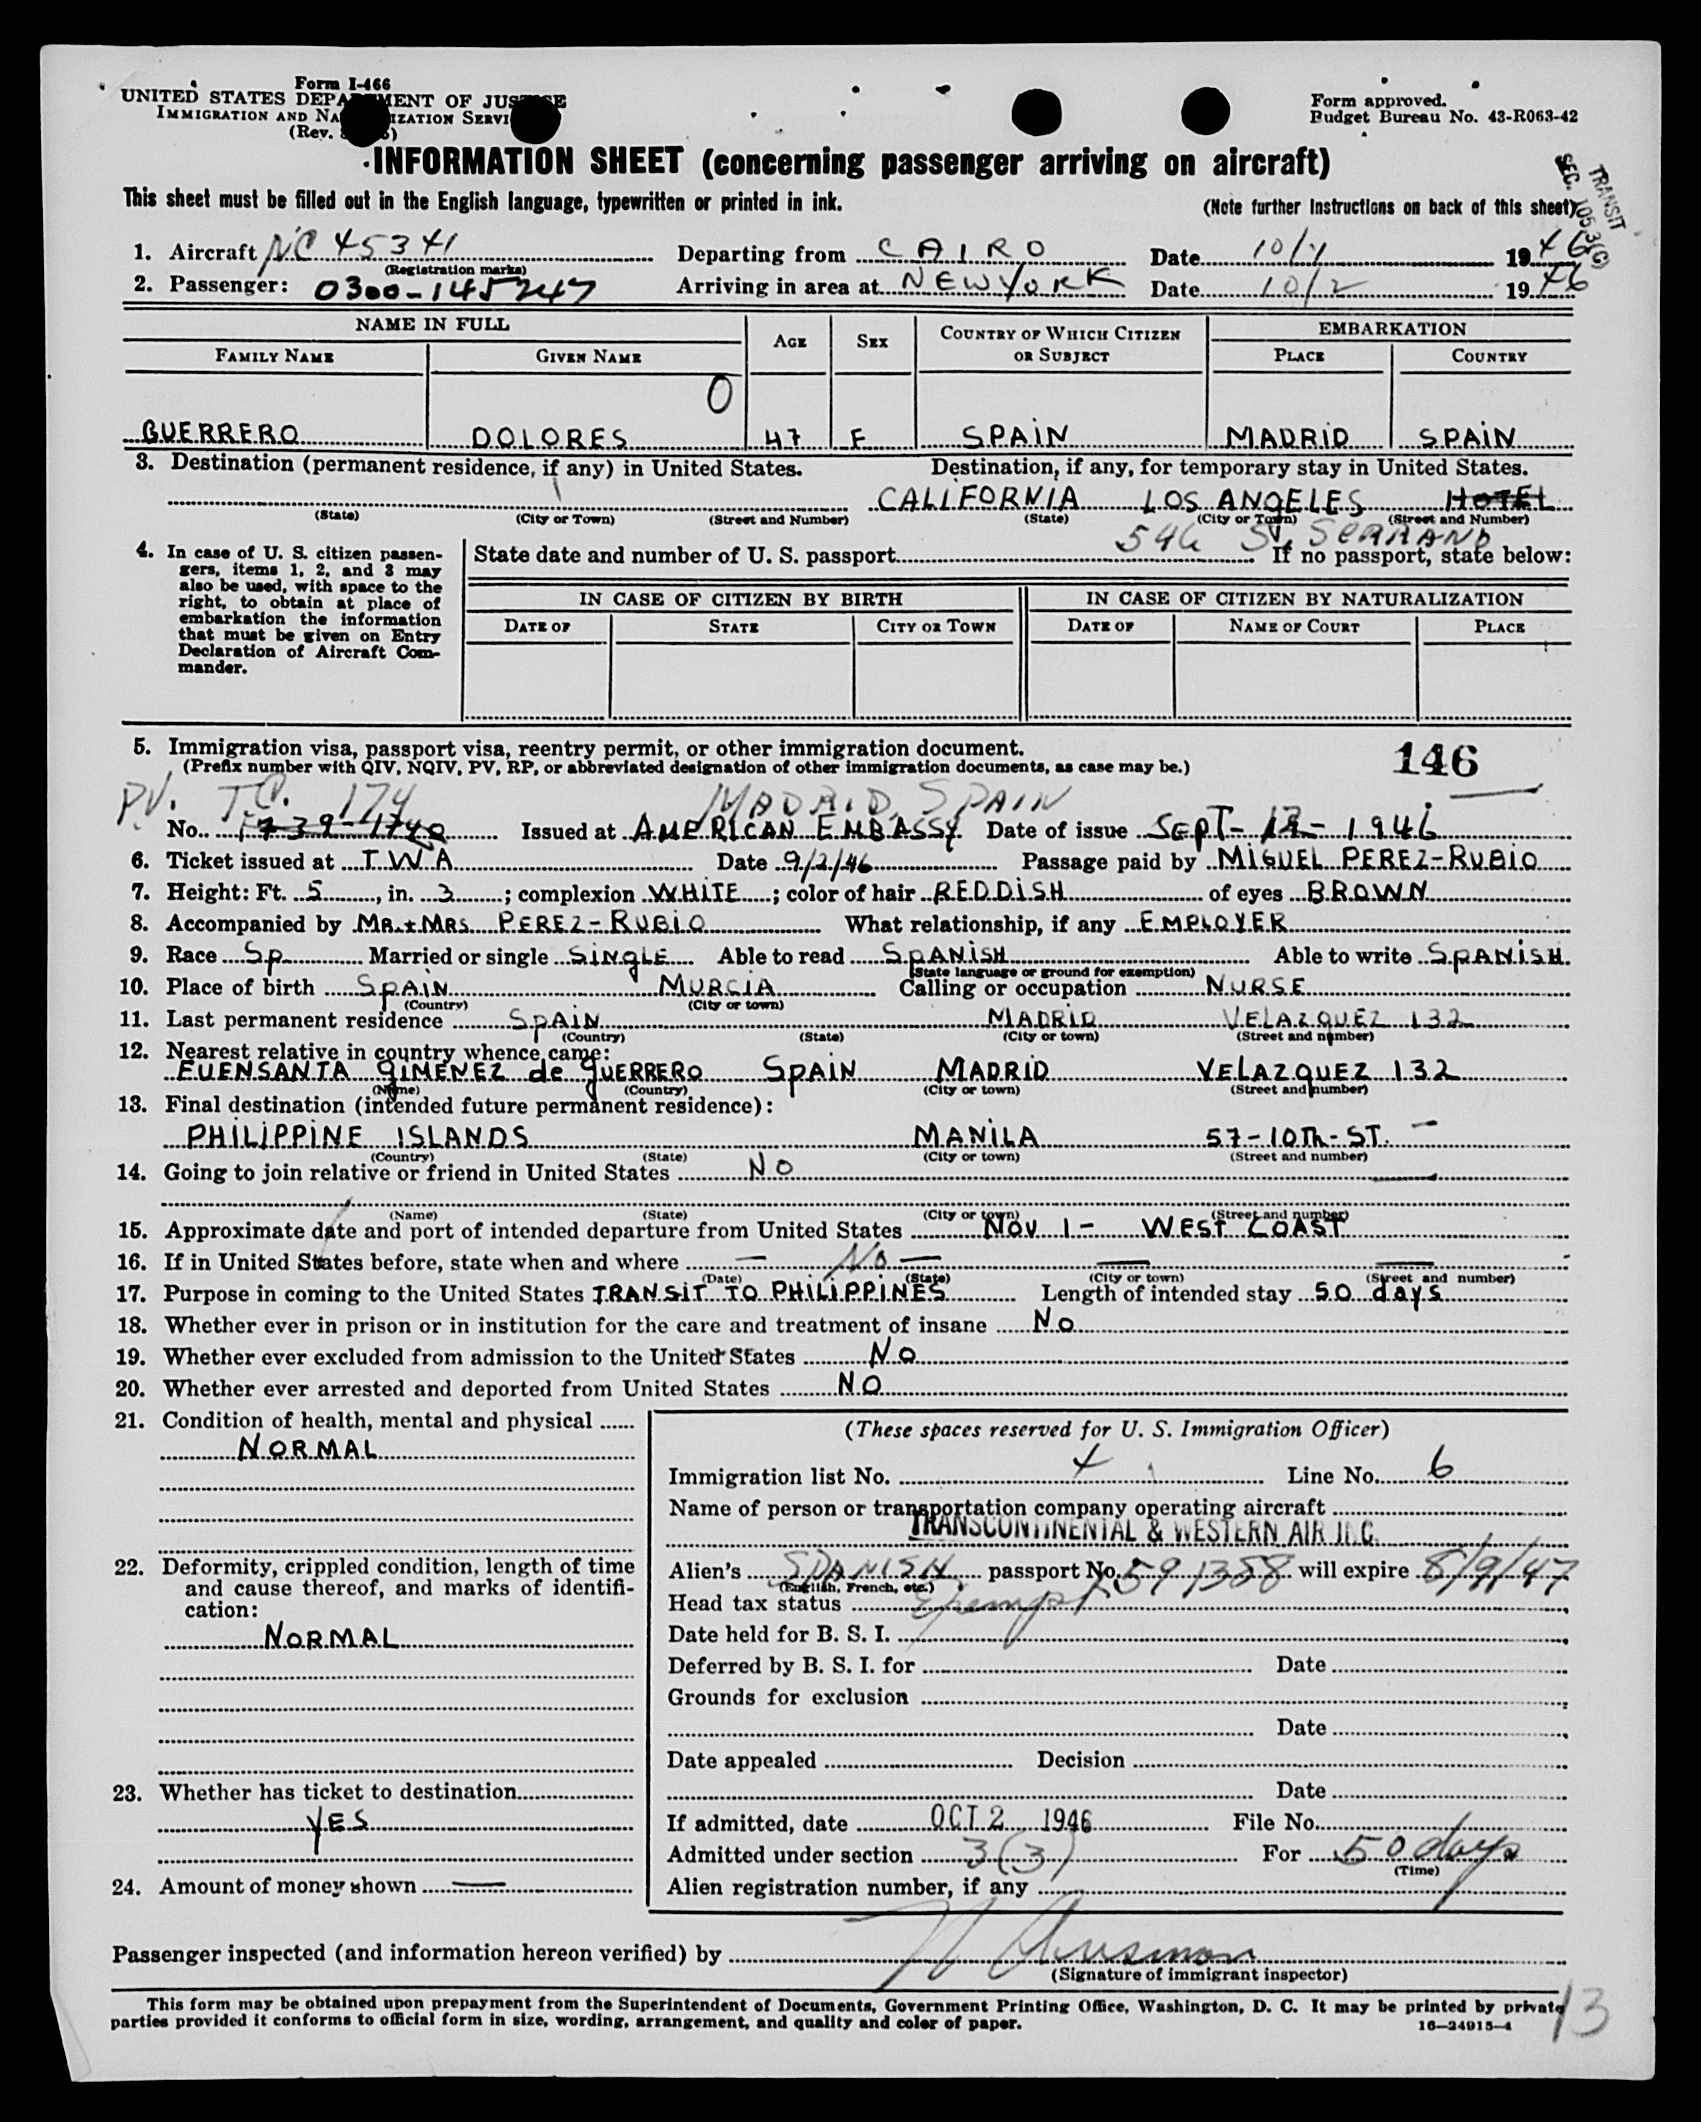 Form I-466
UNITED STATES DEPARTMENT OF JUSTICE
IMMIGRATION AND NATURALIZATION SERVICE
(Rev.
Form approved.
Budget Bureau No. 43-R063-42
INFORMATION SHEET (concerning passenger arriving on aircraft)
TRANSIT
SEC. 1053(C)
This sheet must be filled out in the English language, typewritten or printed in ink. (Note further instructions on back of this sheet)
1. Aircraft NC 45341 Departing from CAIRO Date 10/1 1946
(Registration marks)
2. Passenger: 0300-145247 Arriving in area at NEW YORK Date 10/2 1946
NAME IN FULL AGE SEX COUNTRY OF WHICH CITIZEN OR SUBJECT EMBARKATION
FAMILY NAME GIVEN NAME PLACE COUNTRY
O
GUERRERO DOLORES 47 F SPAIN MADRID SPAIN
3. Destination (permanent residence, if any) in United States. Destination, if any, for temporary stay in United States.
CALIFORNIA LOS ANGELES HOTEL
(State) (City or Town) (Street and Number) (State) (City or Town) (Street and Number)
546 S. SERRANO
4. In case of U. S. citizen passengers, items 1, 2, and 3 may also be used, with space to the right, to obtain at place of embarkation the information that must be given on Entry Declaration of Aircraft Commander.
State date and number of U. S. passport If no passport, state below:
IN CASE OF CITIZEN BY BIRTH IN CASE OF CITIZEN BY NATURALIZATION
DATE OF STATE CITY OR TOWN DATE OF NAME OF COURT PLACE
5. Immigration visa, passport visa, reentry permit, or other immigration document. 146
(Prefix number with QIV, NQIV, PV, RP, or abbreviated designation of other immigration documents, as case may be.)
PV. T.C. 174 MADRID, SPAIN
No. 1739-1740 Issued at AMERICAN EMBASSY Date of issue SEPT-12-1946
6. Ticket issued at T.W.A Date 9/2/46 Passage paid by MIGUEL PEREZ-RUBIO
7. Height: Ft. 5, in. 3; complexion WHITE; color of hair REDDISH of eyes BROWN
8. Accompanied by MR.+MRS PEREZ-RUBIO What relationship, if any EMPLOYER
9. Race Sp Married or single SINGLE Able to read SPANISH Able to write SPANISH.
(State language or ground for exemption)
10. Place of birth SPAIN MURCIA Calling or occupation NURSE
(Country) (City or town)
11. Last permanent residence SPAIN MADRID VELAZQUEZ 132
(Country) (State) (City or town) (Street and number)
12. Nearest relative in country whence came:
FUENSANTA GIMENEZ de GUERRERO SPAIN MADRID VELAZQUEZ 132
(Name) (Country) (City or town) (Street and number)
13. Final destination (intended future permanent residence):
PHILIPPINE ISLANDS MANILA 57-10Th-ST. —
(Country) (State) (City or town) (Street and number)
14. Going to join relative or friend in United States NO
(Name) (State) (City or town) (Street and number)
15. Approximate date and port of intended departure from United States NOV 1- WEST COAST
16. If in United States before, state when and where — NO —
(Date) (State) (City or town) (Street and number)
17. Purpose in coming to the United States TRANSIT TO PHILIPPINES Length of intended stay 50 days
18. Whether ever in prison or in institution for the care and treatment of insane No
19. Whether ever excluded from admission to the United States No
20. Whether ever arrested and deported from United States NO
21. Condition of health, mental and physical
NORMAL
22. Deformity, crippled condition, length of time
and cause thereof, and marks of identification:
NORMAL
23. Whether has ticket to destination
YES
24. Amount of money shown —
(These spaces reserved for U. S. Immigration Officer)
Immigration list No. 4 Line No. 6
Name of person or transportation company operating aircraft
TRANSCONTINENTAL & WESTERN AIR INC.
Alien's SPANISH passport No. 591388 will expire 8/9/47
(English, French, etc.)
Head tax status Exempt
Date held for B. S. I.
Deferred by B. S. I. for Date
Grounds for exclusion
Date
Date appealed Decision
Date
If admitted, date OCT 2 1946 File No.
Admitted under section 3(3) For 50 days
(Time)
Alien registration number, if any
Passenger inspected (and information hereon verified) by
(Signature of immigrant inspector)
This form may be obtained upon prepayment from the Superintendent of Documents, Government Printing Office, Washington, D. C. It may be printed by private
parties provided it conforms to official form in size, wording, arrangement, and quality and color of paper.
16—24915-4
13